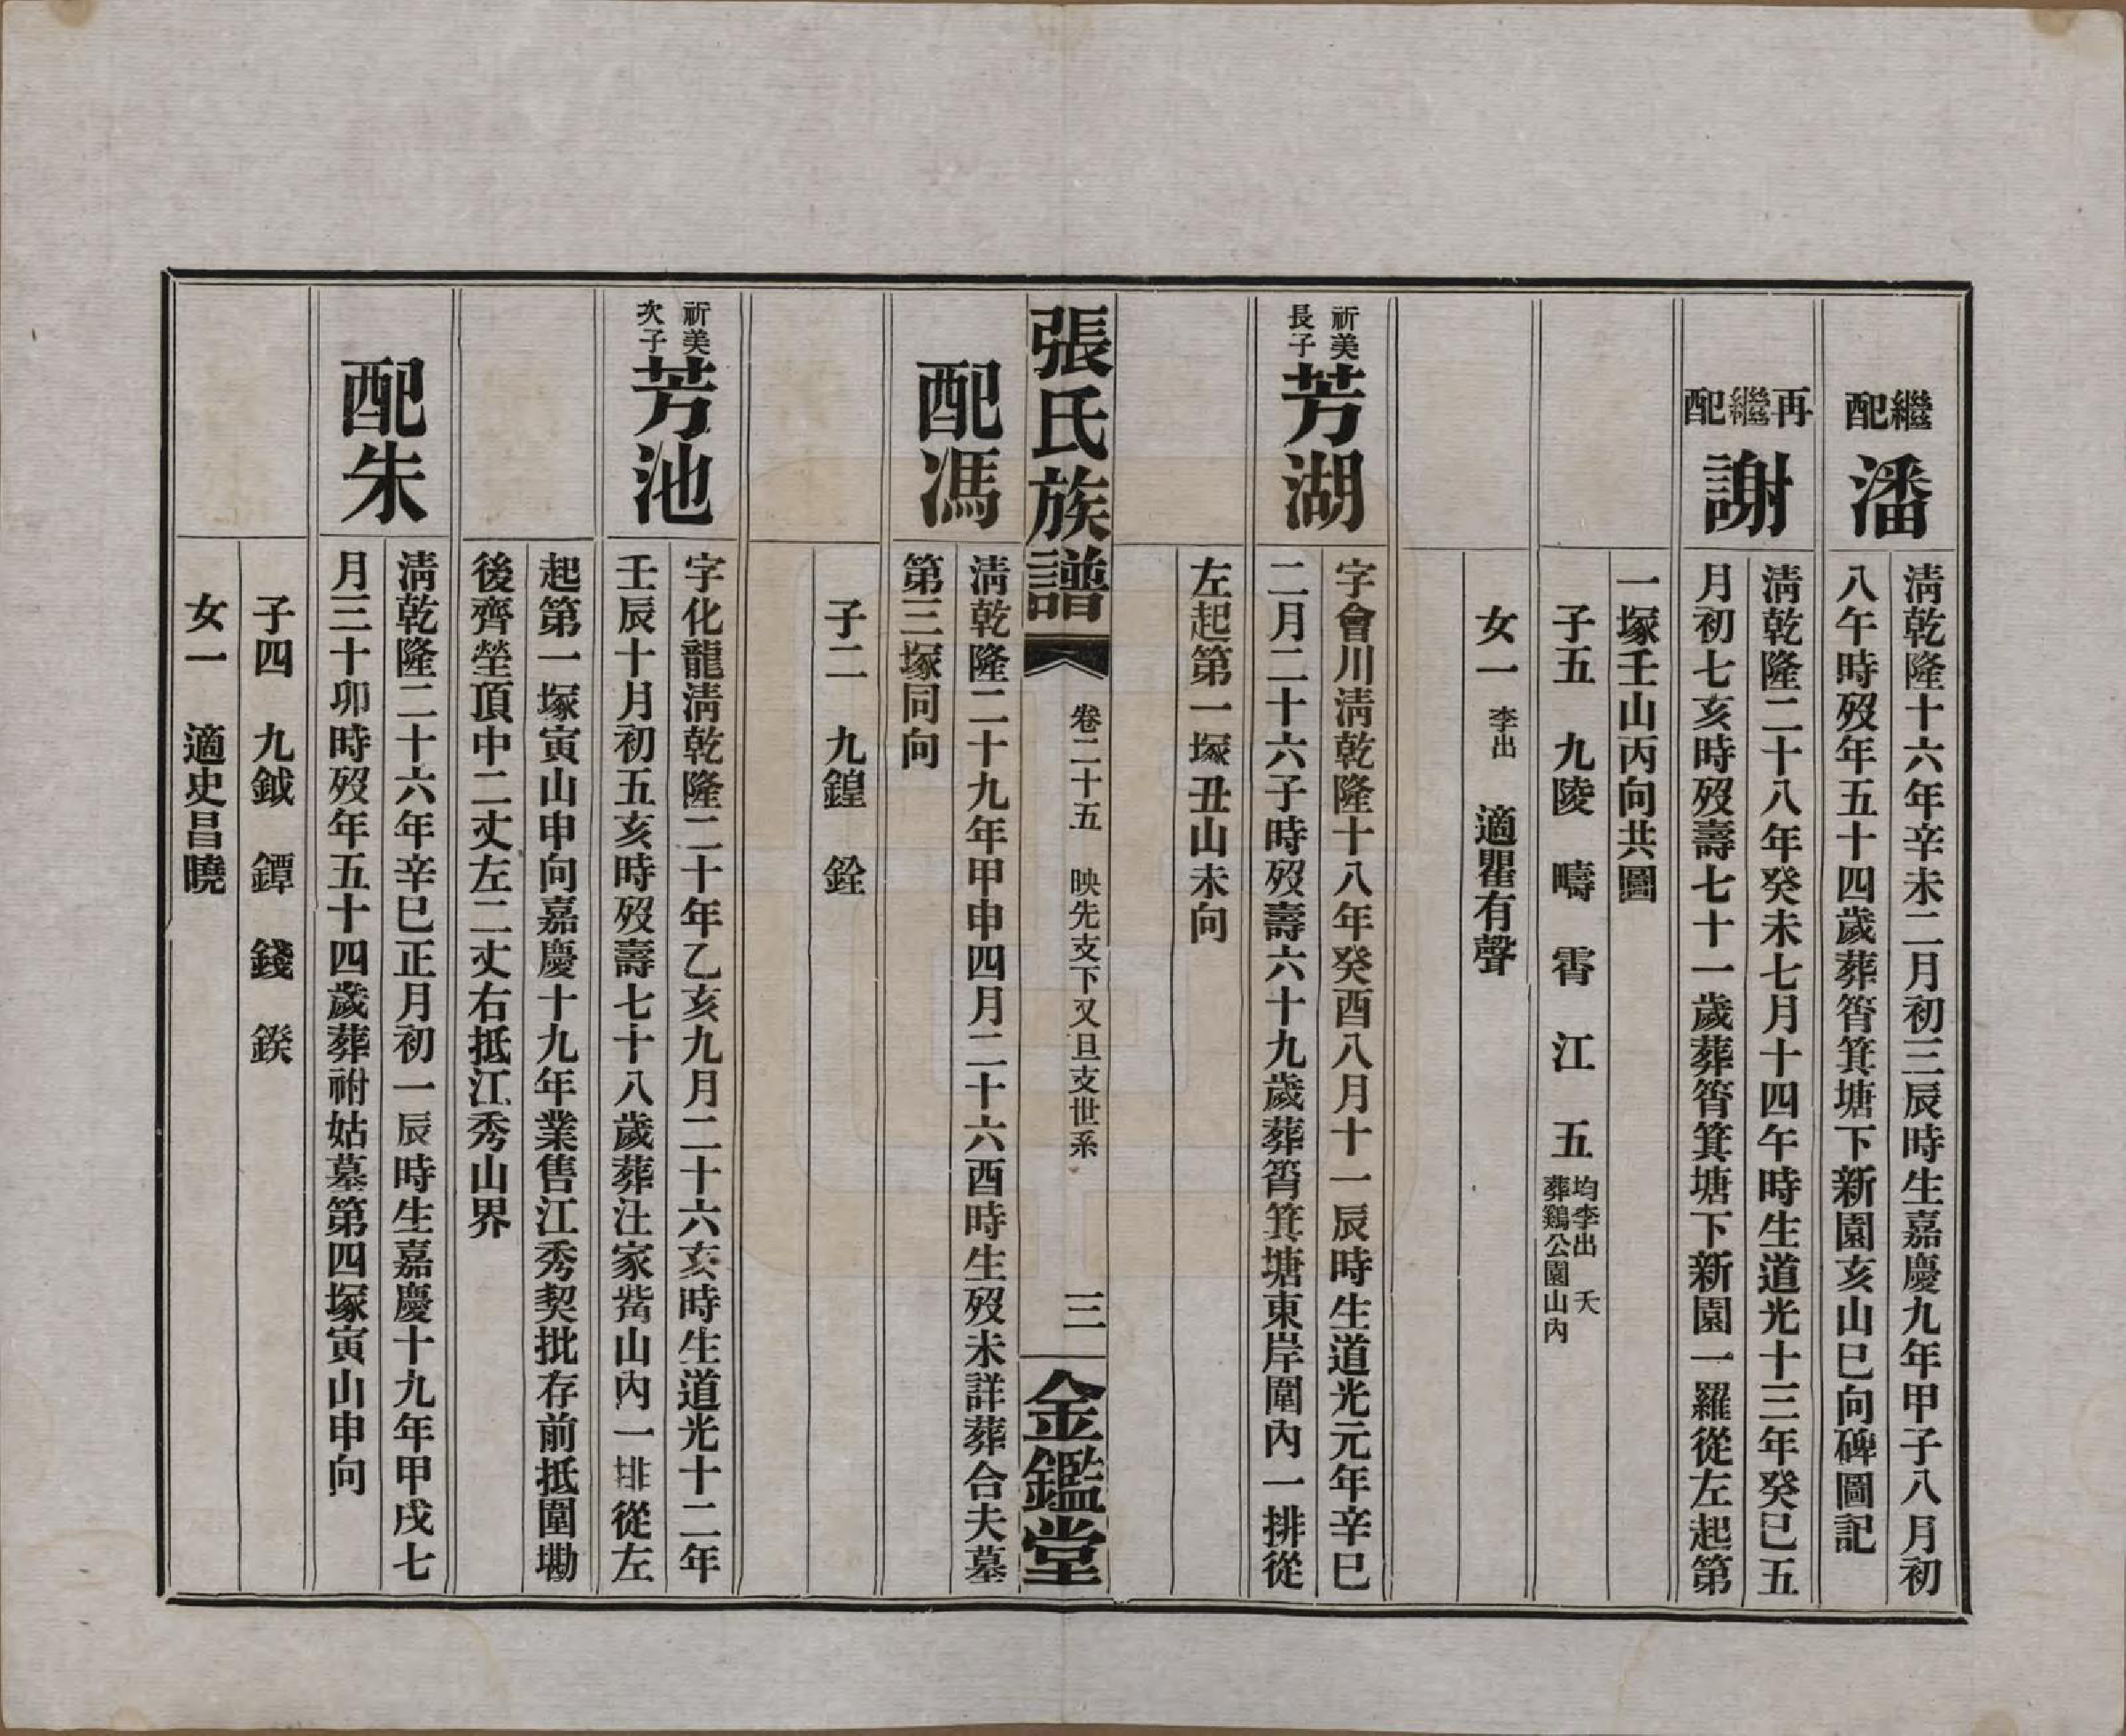 繼配
潘
清乾隆十六年辛未二月初三辰時生嘉慶九年甲子八月初
八午時歿年五十四歲葬筲箕塘下新園亥山巳向碑圖記
再繼配
謝
清乾隆二十八年癸未七月十四午時生道光十三年癸巳五
月初七亥時歿壽七十一歲葬筲箕塘下新園一羅從左起第
一塚壬山丙向共圖
子五 九陵 疇 霄 江 五 均李出 夭
葬鷄公園山內
女一 李出 適瞿有聲
祈美
長子
芳湖
字會川清乾隆十八年癸酉八月十一辰時生道光元年辛巳
二月二十六子時歿壽六十九歲葬筲箕塘東岸圍內一排從
左起第一塚丑山未向
張氏族譜
卷二十五 映先支下又旦支世系
三
金鑑堂
配馮
清乾隆二十九年甲申四月二十六酉時生歿未詳葬合夫墓
第三塚同向
子二 九鍠 銓
祈美
次子
芳池
字化龍清乾隆二十年乙亥九月二十六亥時生道光十二年
壬辰十月初五亥時歿壽七十八歲葬家山內一排從左
起第一塚寅山申向嘉慶十九年業售江秀契批存前抵圍墈
後齊塋頂中二丈左二丈右抵江秀山界
配朱
清乾隆二十六年辛巳正月初一辰時生嘉慶十九年甲戌七
月三十卯時歿年五十四歲葬祔姑墓第四塚寅山申向
子四 九鉞 鐔 錢 鍨
女一 適史昌曉